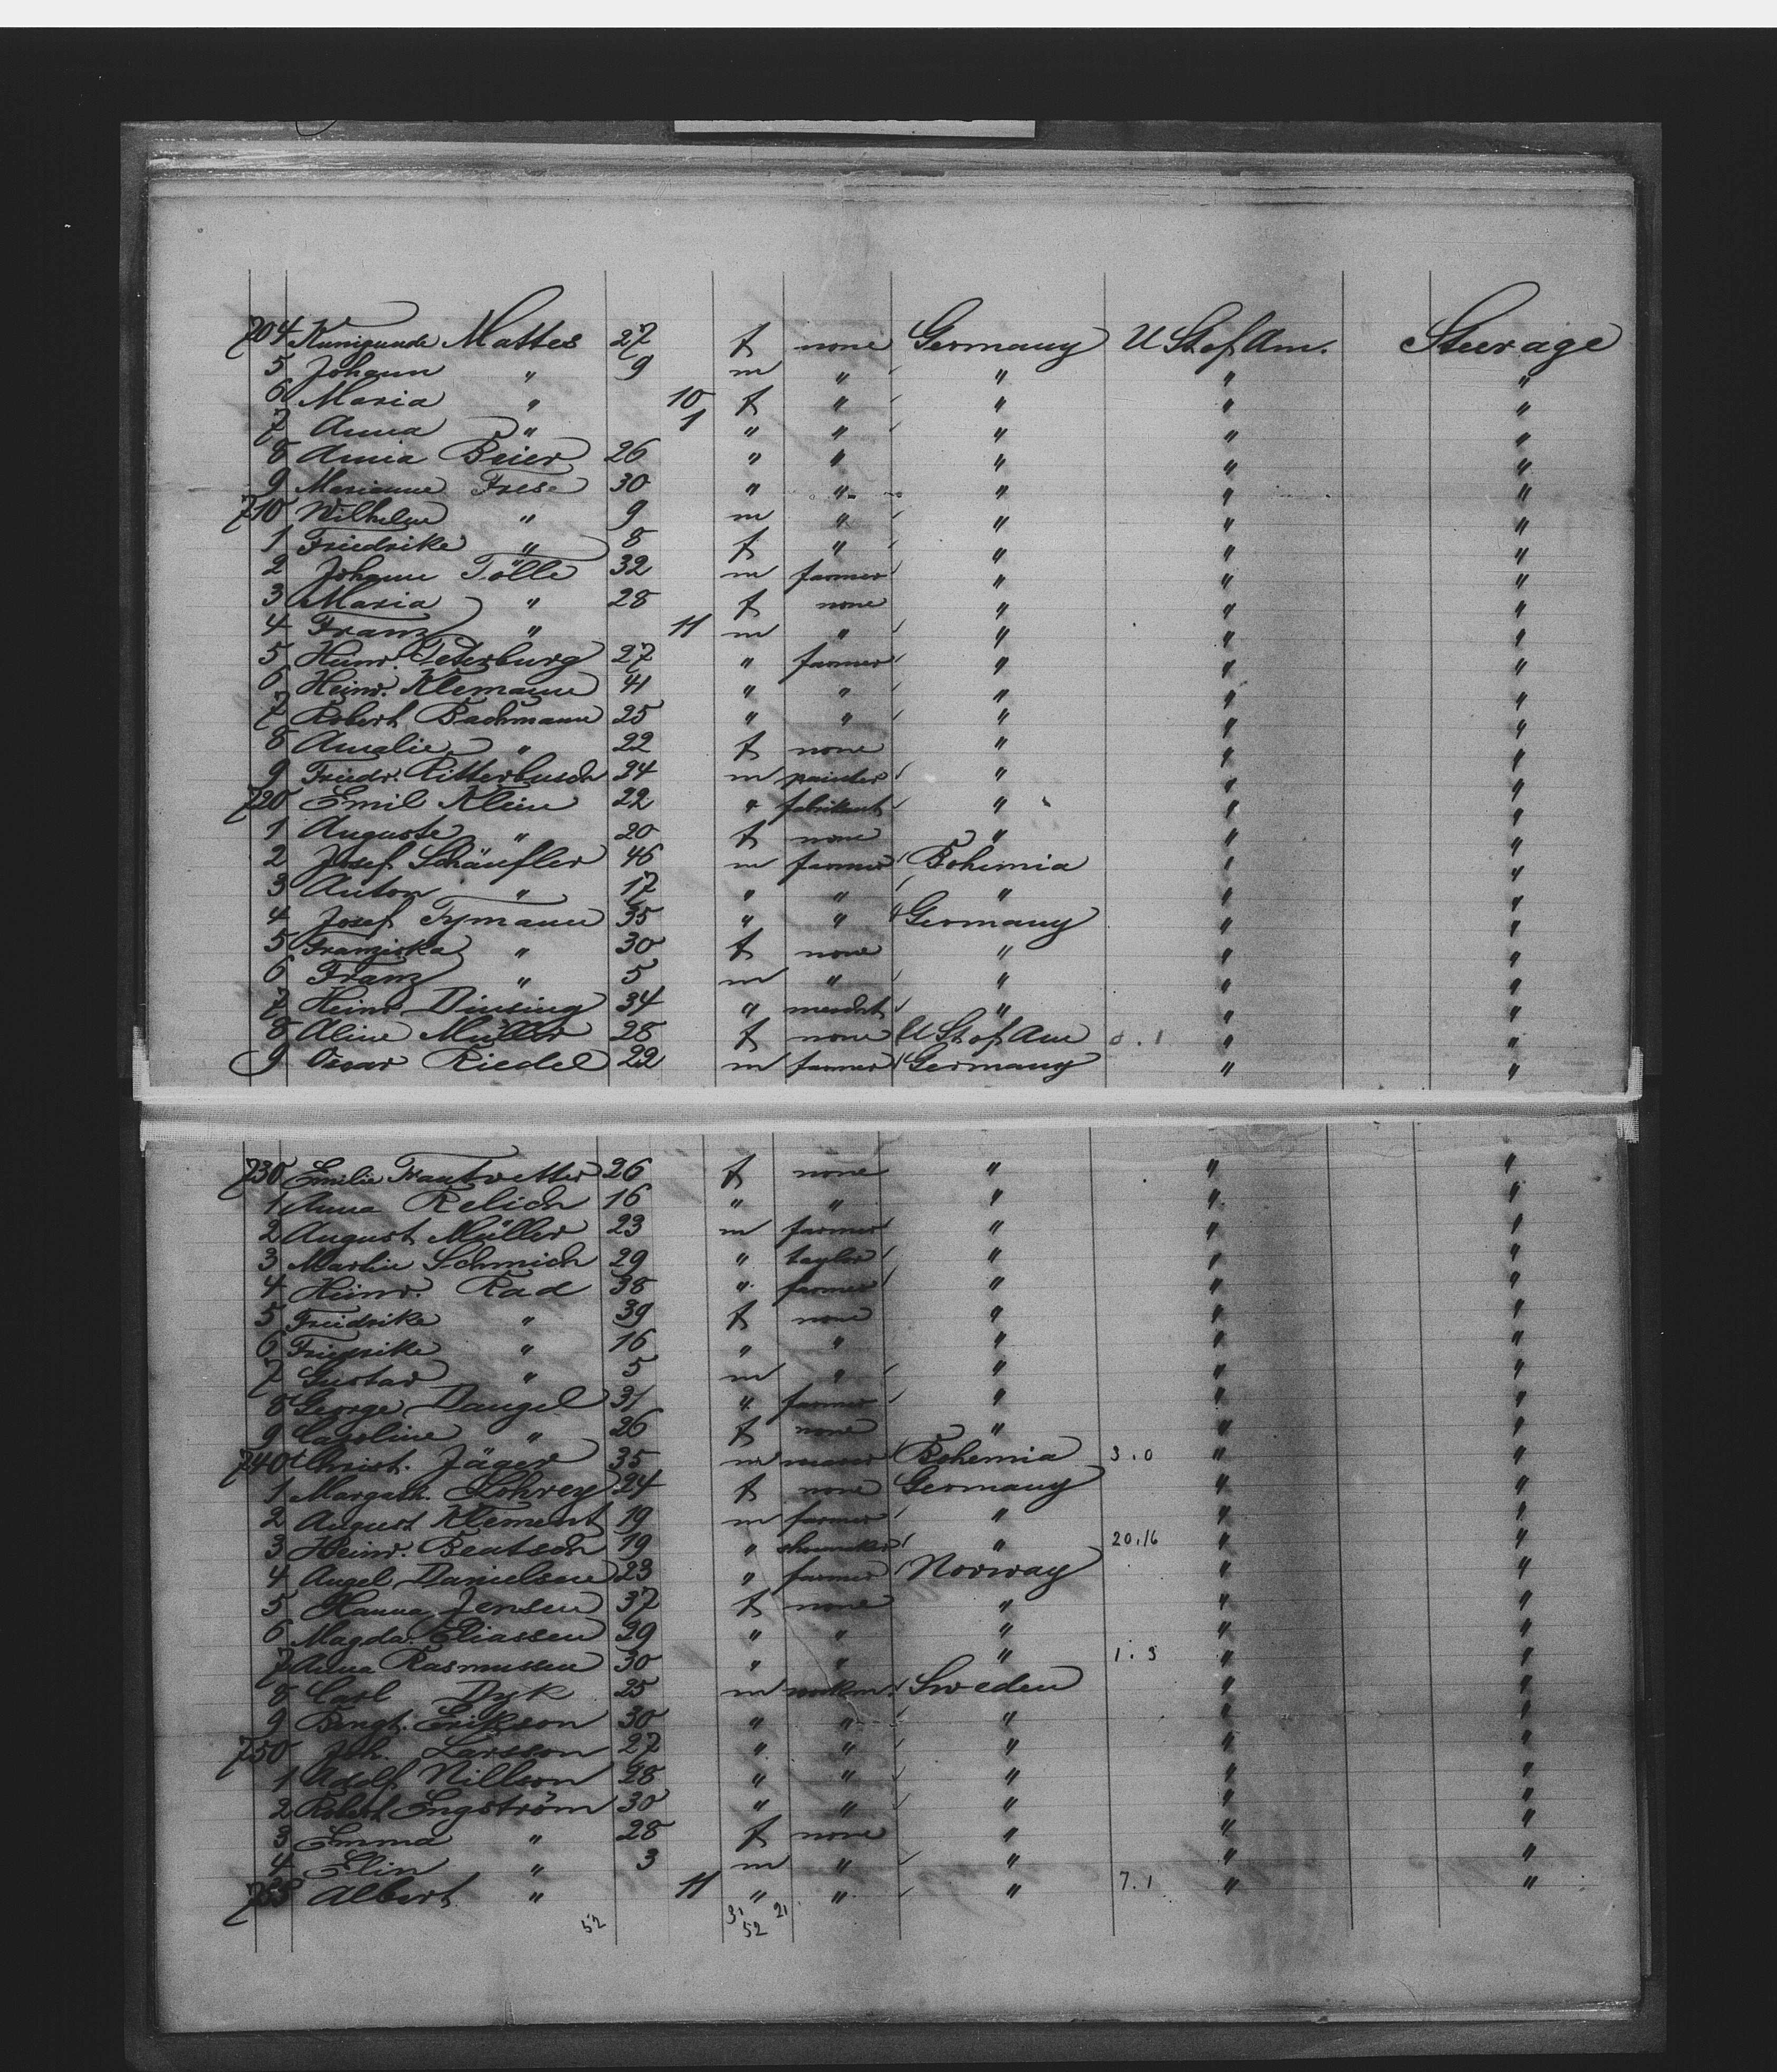 704 Kunigunde Mattes 27 f none Germany U St of Am. Steerage
5 Johann " 9 m " " " "
6 Maria " 10 f " " " "
7 Anna " 1 " " " " "
8 Anna Beier 26 " " " " "
9 Marianne Frese 30 " " " " "
710 Wilhelm " 9 m " " " "
1 Friedrike " 8 f " " " "
2 Johann Tölle 32 m farmer " " "
3 Maria " 28 f none " " "
4 Franz " 11 m " " " "
5 Heinr. Peterburg 27 " farmer " " "
6 Heinr. Klemann 41 " " " " "
7 Robert Bachmann 25 " " " " "
8 Amalie " 22 f none " " "
9 Friedr. Ritterbusch 24 m painter " " "
720 Emil Klein 22 " fabrikant " " "
1 Auguste " 20 f none " " "
2 Josef Schäufler 46 m farmer Bohemia " "
3 Anton " 17 " " " " "
4 Josef Tymann 35 " " Germany " "
5 Franziska " 30 f none " " "
6 Franz " 5 m " " " "
7 Heinr Dinsing 34 " mercht " " "
8 Aline Müller 28 f none U St of Am 0.1 " "
9 Oscar Riedel 22 m farmer Germany " "
730 Emilie Trautvetter 26 f none " " "
1 Anna Relich 16 " " " " "
2 August Müller 23 m farmer " " "
3 Martin Schmich 29 " taylor " " "
4 Heinr. Rad 38 " farmer " " "
5 Friedrike " 39 f none " " "
6 Friedrike " 16 " " " " "
7 Gustav " 5 m " " " "
8 George Dangel 31 " farmer " " "
9 Caroline " 26 f none " " "
740 Christ. Jäger 35 m Bohemia 3.0 " "
1 Margath. Lohrey 24 f none Germany " "
2 August Klement 19 m farmer " " "
3 Heinr. Beatsch 19 " shumaker " 20.16 " "
4 Angel Danielsen 23 " farmer Norway " "
5 Hanna Jensen 37 f none " " "
6 Magda. Eliassen 29 " " " " "
7 Anna Rasmussen 30 " " " 1.3 " "
8 Carl Dyk 25 m workm. Sweden " "
9 Bengt. Erikson 30 " " " " "
750 Joh. Larsson 27 " " " " "
1 Adolf Nillson 28 " " " " "
2 Robert Engström 30 " " " " "
3 Emma " 28 f none " " "
4 Elin " 3 m " " " "
755 Albert " 11 " " " 7.1 " "
52 31 21
52